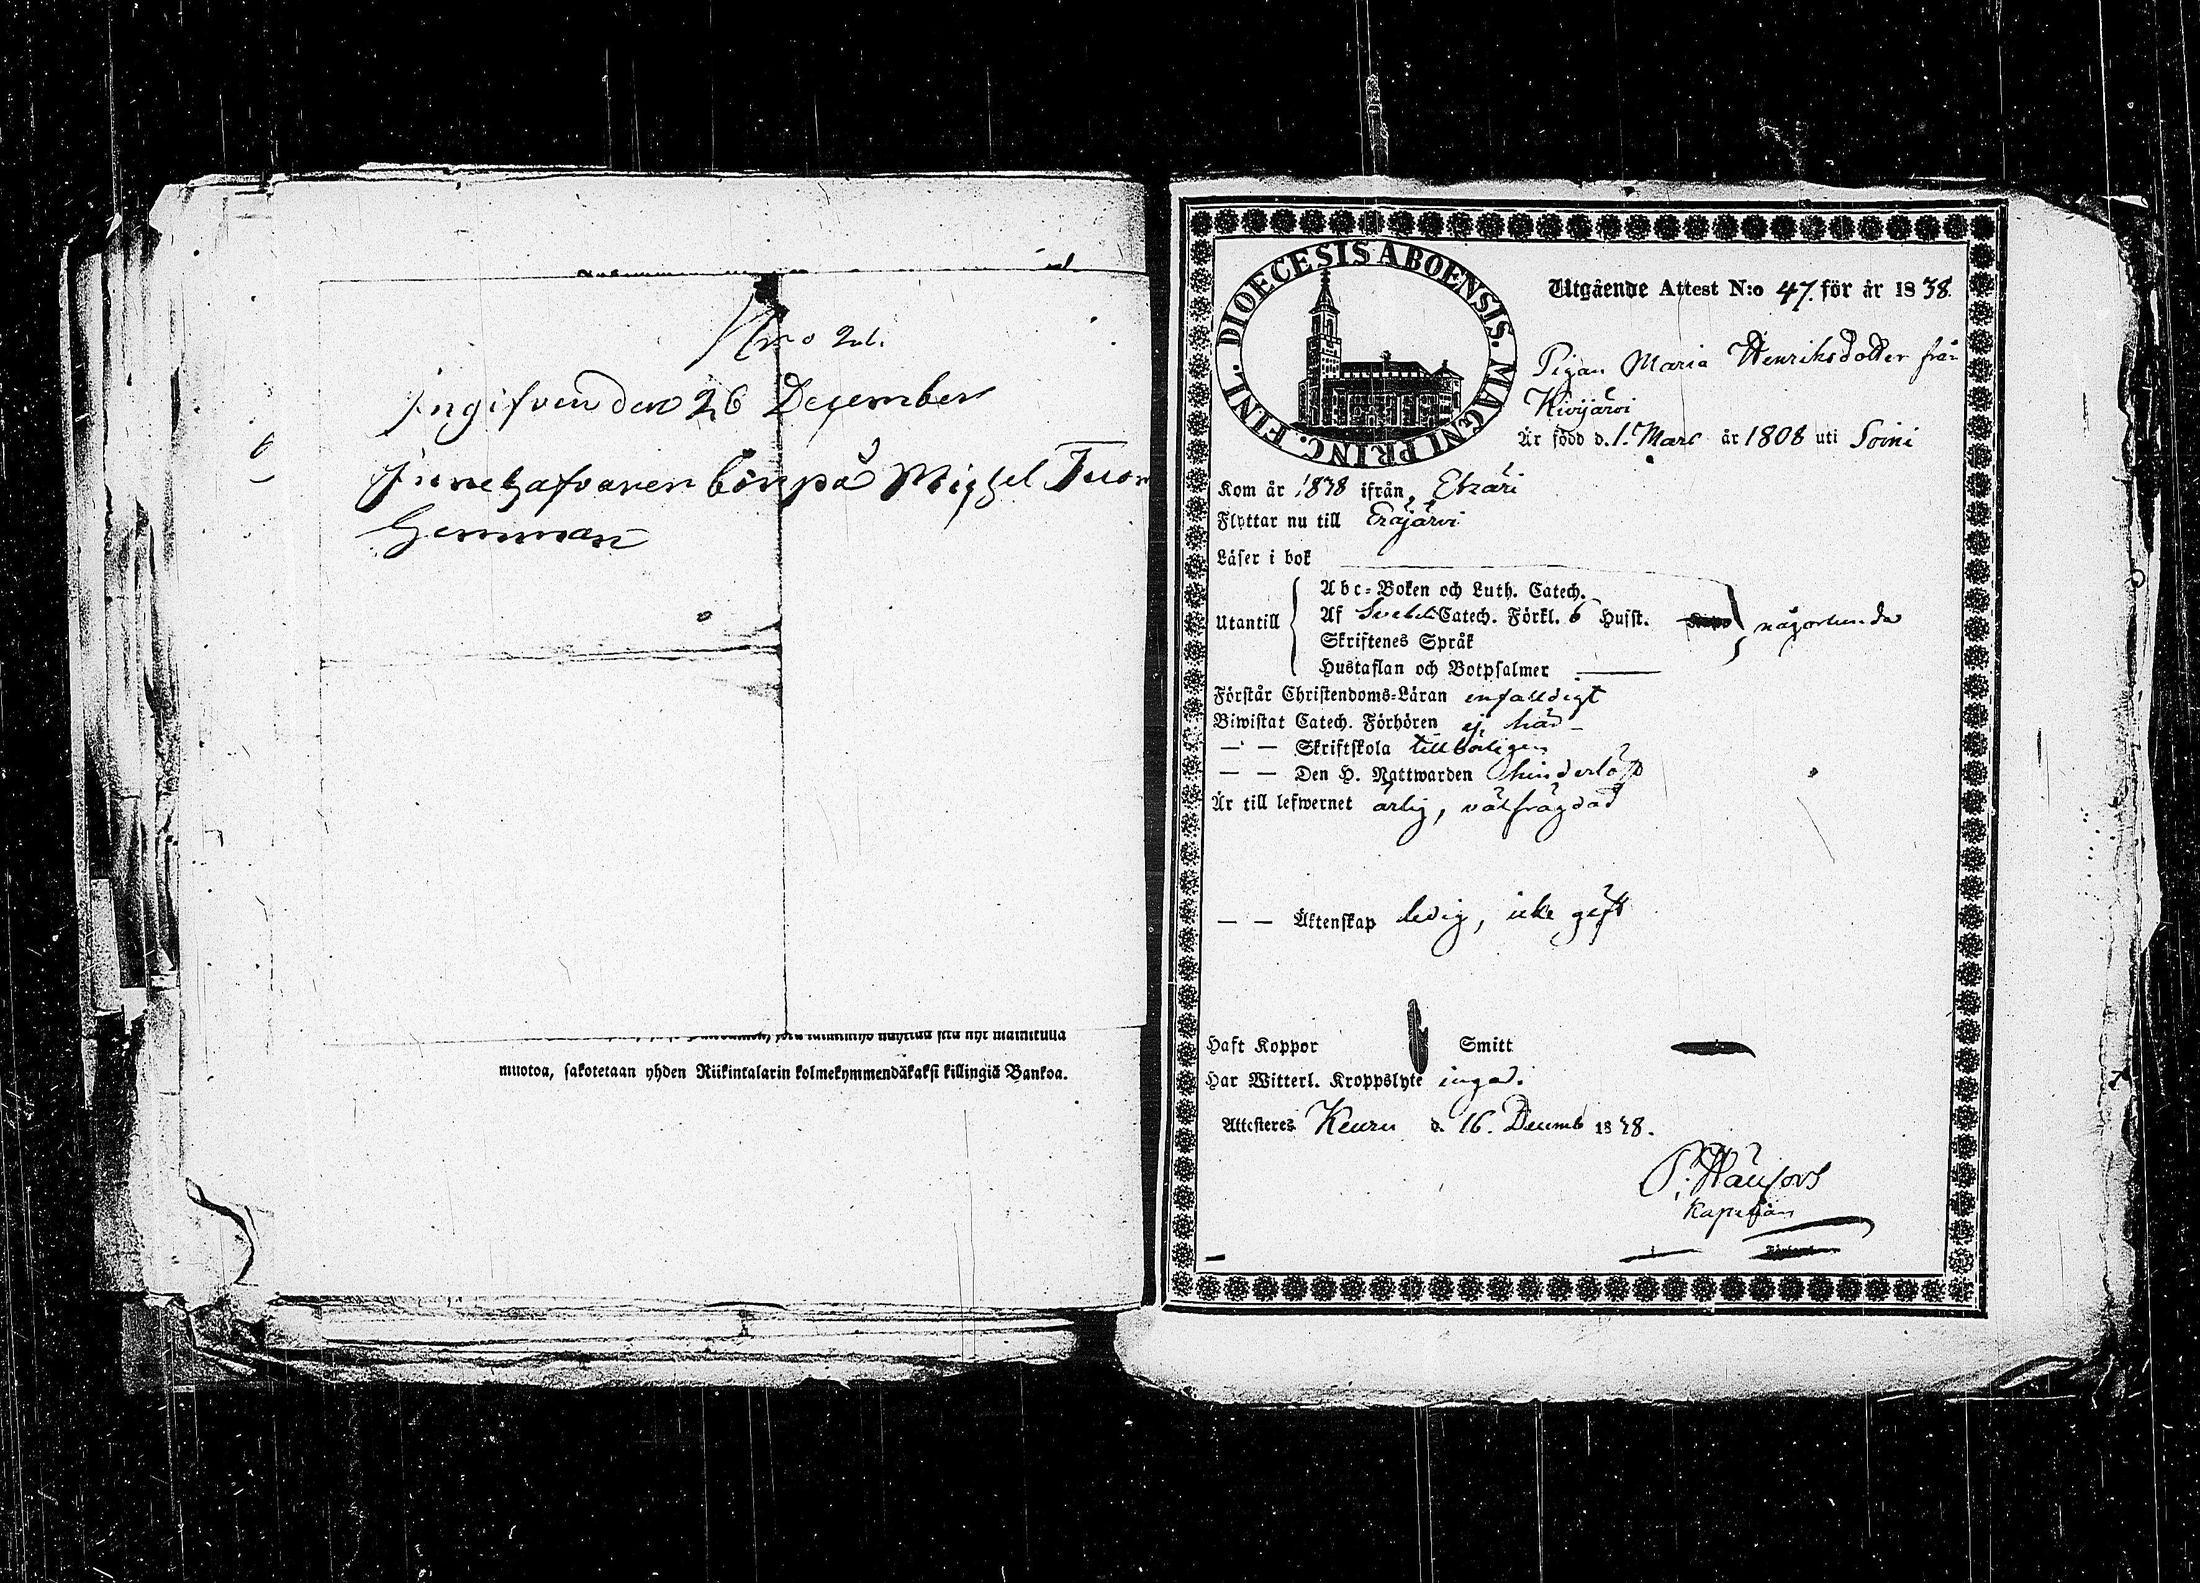 Ingifven den 26 December
Innehafvaren bör på Michel
Hemman
muotoa, sakotetaan yhden Riikintalarin kolmekymmendäkaksi killingiä Bankoa.
DIOECESIS ABOENSIS. MAGNI PRINC. FINL.
Utgående Attest N:o 47. för år 1838.
Pigan Maria Henriksdotter från
Kivijärvi
Är född d. 1. Mars år 1808 uti Soini
Kom år 1838 ifrån Etzäri
Flyttar nu till Eräjärvi
Läser i bok
Abc-Boken och Luth. Catech.
Utantill Af Svebelii Catech. Förkl. 6 Husst. någorlunda
Skriftenes Språk
Hustaflan och Botpsalmer
Förstår Christendoms-Läran enfalldigt
Biwistat Catech. Förhören ej här
— — Skriftskola tillbörligen
— — Den H. Nattwarden hinderlöst
Är till lefwernet ärlig, välfrägdad
— — Äktenskap ledig, icke gift
Haft Koppor Smitt
Har Witterl. Kroppslyte inga.
Attesteres Keuru d. 16. Decemb 1838.
Kapellan